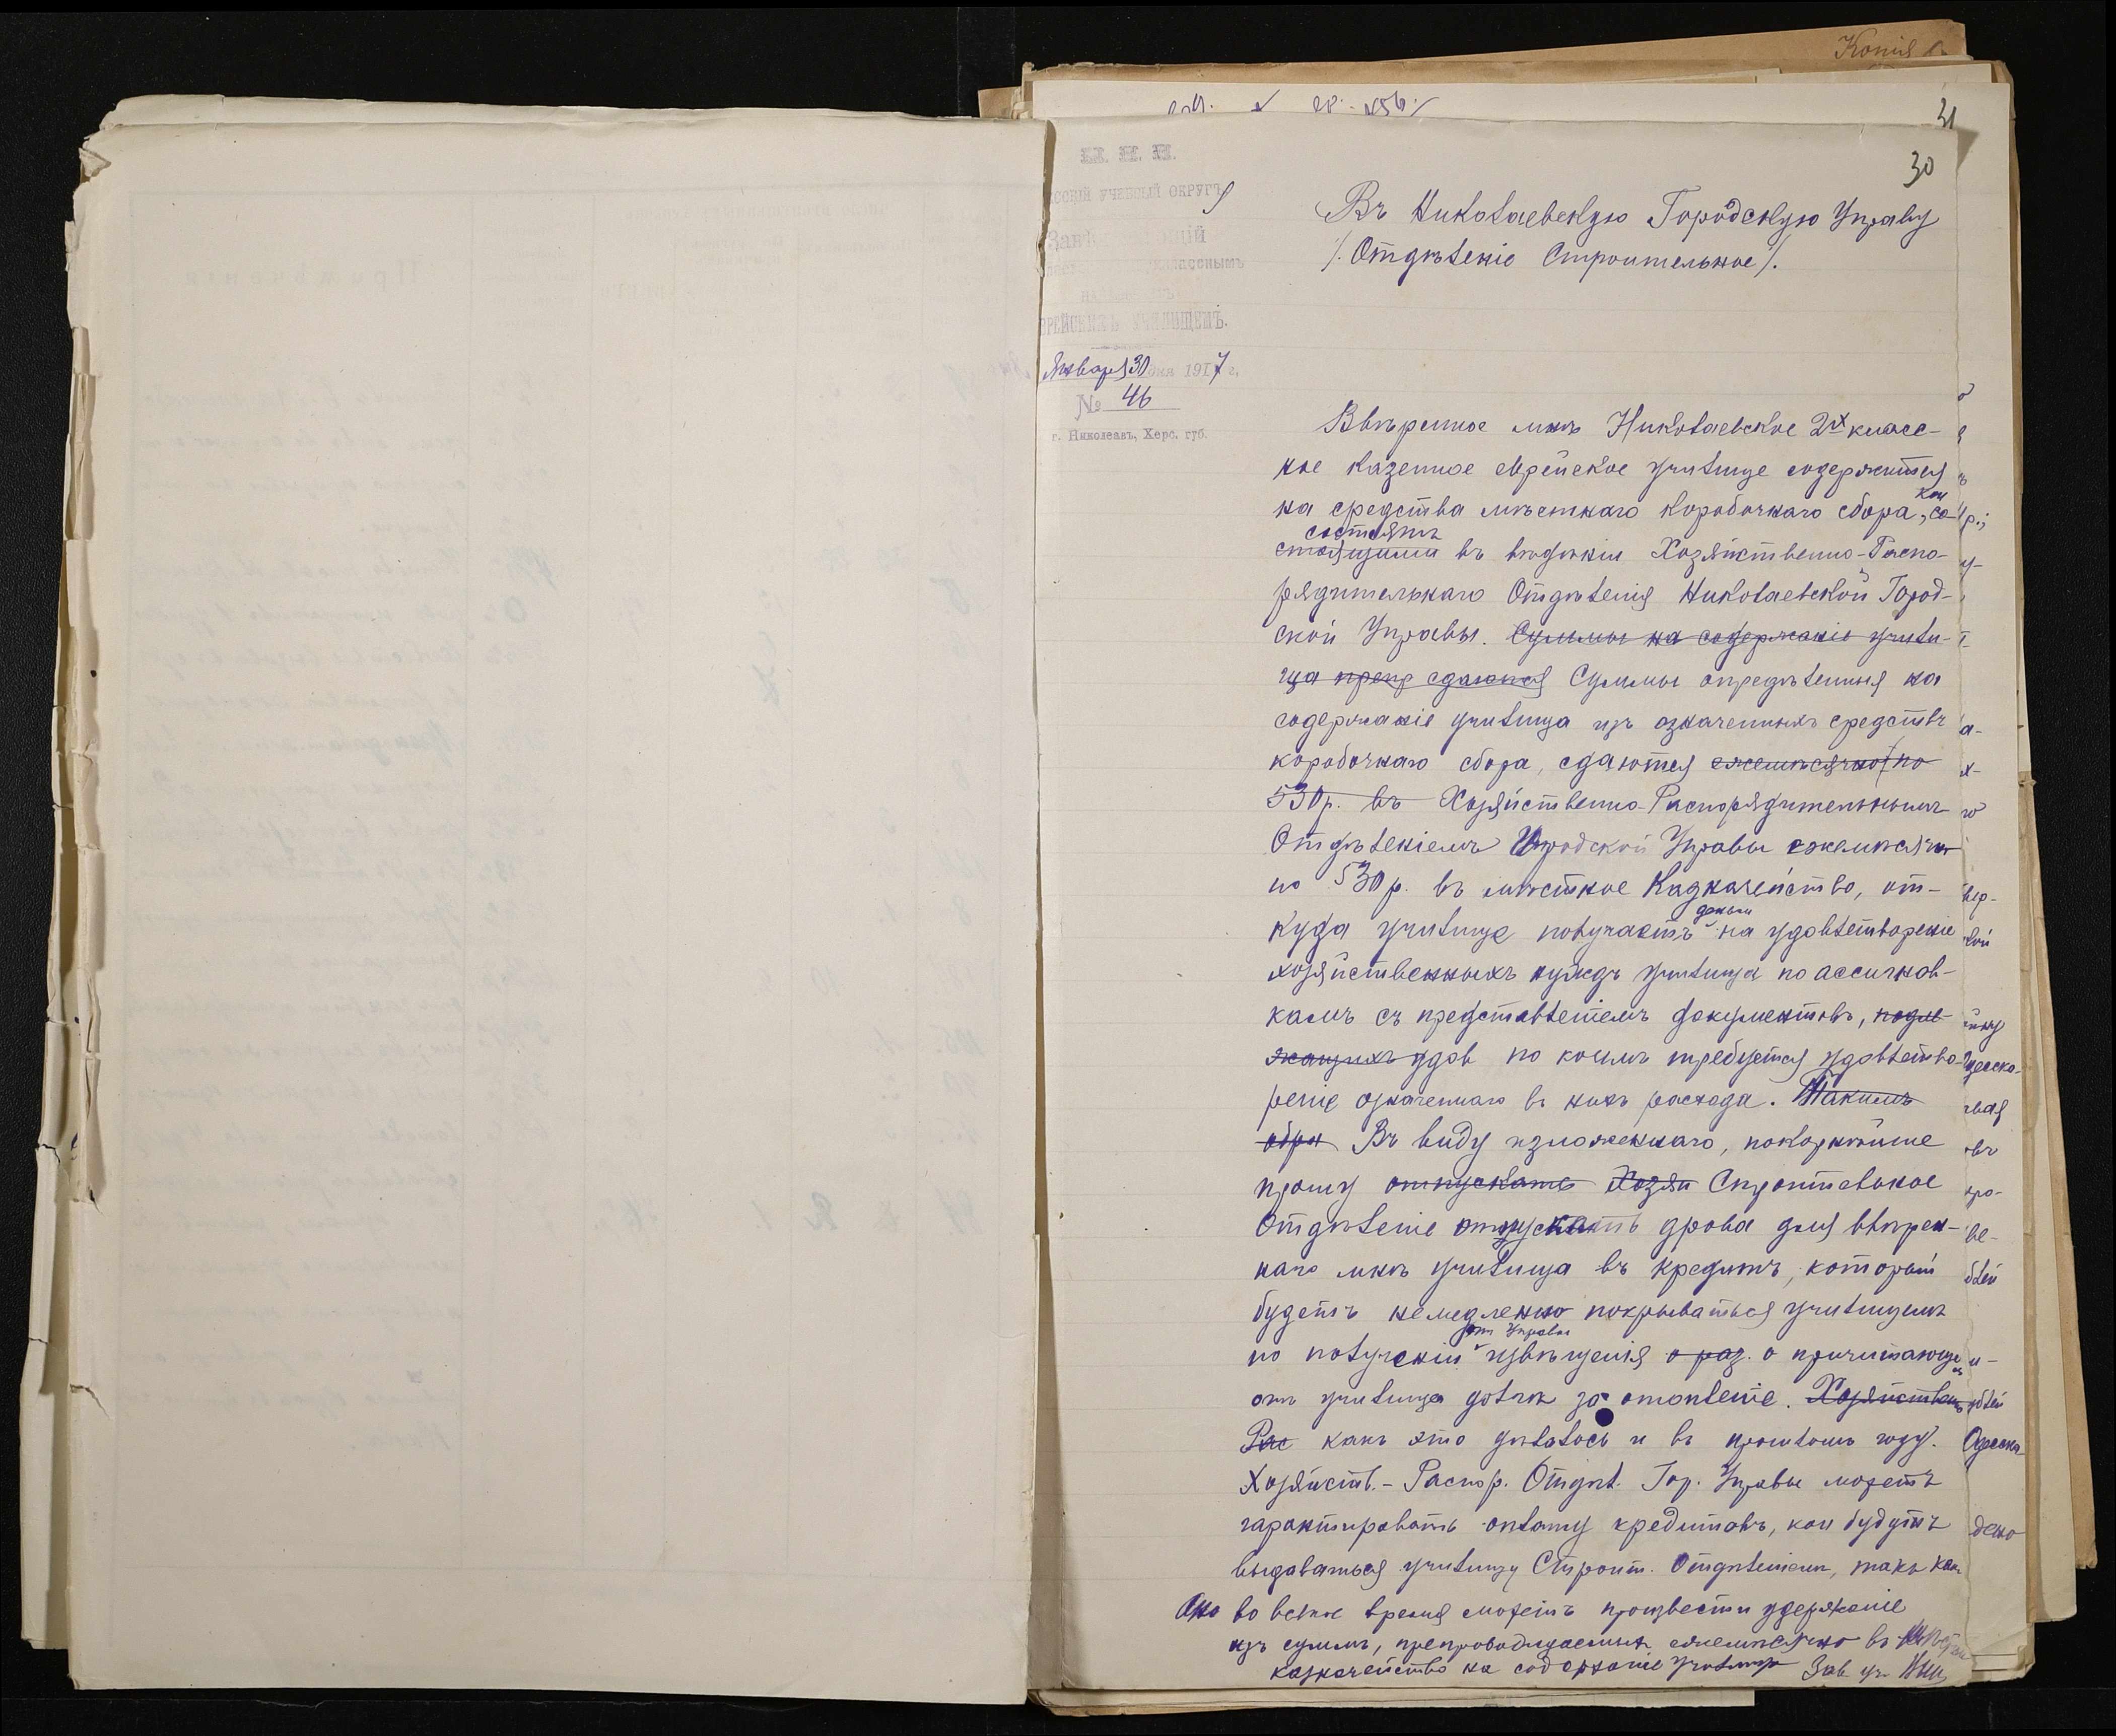 Копія
31
30
М. Н. П.
ОДЕССКІЙ УЧЕБНЫЙ ОКРУГЪ
класснымъ
ЕВРЕЙСКИМЪ УЧИЛИЩЕМЪ.
Января 30 дня 1917 г.
№ 46
г. Николаевъ, Херс. губ.
Въ Николаевскую Городскую Управу
/. Отдѣленіе Строительное /.
Ввѣренное мнѣ Николаевское 2х класс-
ное казенное еврейское училище содержится
на средства мѣстнаго коробочнаго сбора, кои со-
состоятъ
стоящими въ вѣдѣніи Хозяйственно-Распо-
рядительнаго Отдѣленія Николаевской Город-
ской Управы. Суммы на содержаніе учили-
ща препр сдаются Суммы опредѣленныя на
содержаніе училища изъ означенныхъ средствъ
коробочнаго сбора, сдаются ежемѣсячно по
530 р. въ Хозяйственно-Распорядительнымъ
Отдѣленіемъ Городской Управы ежемѣсячно
по 530 р. въ мѣстное Казначейство, от-
деньги
куда училище получаетъ на удовлетвореніе
хозяйственныхъ нуждъ училища по ассигнов-
камъ съ представленіемъ документовъ, подле-
жащихъ удов по коимъ требуется удовлетво-
реніе означеннаго въ нихъ расхода. Такимъ
обра Въ виду изложеннаго, покорнѣйше
прошу отпускать Хозяй Строительное
Отдѣленіе отпускать дрова для ввѣрен-
наго мнѣ училища въ кредитъ, который
будетъ немедленно покрываться училищемъ
отъ Управы
по полученіи извѣщенія о раз. о причитающемся
отъ училища долгѣ за отопленіе. Хозяйственно
Рас какъ это дѣлалось и въ прошломъ году.
Хозяйств.-Распор. Отдѣл. Гор. Управы можетъ
гарантировать оплату кредитовъ, кои будутъ
выдаваться училищу Строит. Отдѣленіемъ, такъ какъ
оно во всякое время можетъ произвести удержаніе
изъ суммъ, препровождаемыхъ ежемѣсячно въ
казначейство на содержаніе училища Зав. уч.